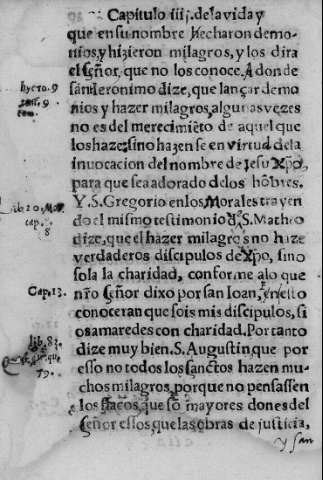 Capitulo iiij. de la vida y
que en su nombre hecharon demo-
nios, y hizieron milagros, y los dira
el Señor, que no los conoce. A donde
san Ieronimo dize, que lançar demo
nios y hazer milagros, algunas vezes
no es del merecimiẽto de aquel que
los haze; sino hazen se en virtud de la
inuocacion del nombre de Jesu Xp̃o,
para que sea adorado de los hõbres.
Y. S. Gregorio en los Morales trayen
do el mismo testimonio d̃ S. Matheo
dize, que el hazer milagros no haze
verdaderos discipulos de Xp̃o, sino
sola la charidad, conforme a lo que
nr̃o Señor dixo por san Ioan, en esto
conoceran que sois mis discipulos, si
os amaredes con charidad. Por tanto
dize muy bien. S. Augustin, que por
esso no todos los sanctos hazen mu-
chos milagros, porque no pensassen
los flacos, que sõ mayores dones del
Señor essos, que las obras de justicia,
y san
9
lib 20. Mor.
cap.
8
Cap. 13.
lib. 83.
que
79.